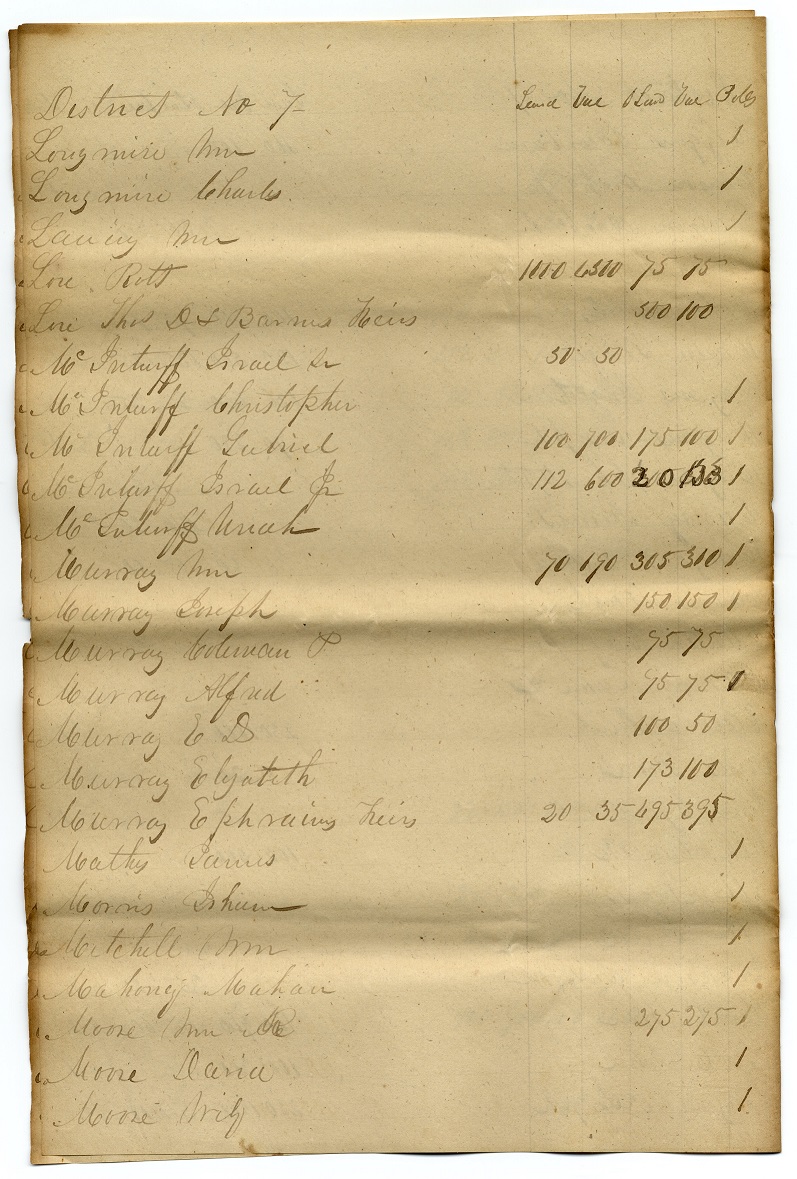 District No 7 Land Val O Land Val Poles
Longmire Wm 1
Longmire Charles 1
Wm 1
Love Robt 1000 6300 75 75
Love Thos D & Barnes Heirs 500 100
McInturff Israel Sr 50 50
McInturff Christopher 1
McInturff Gabriel 100 700 175 100 1
McInturff Israel Jr 112 600 20 133 1
McInturff Uriah 1
Murray Wm 70 190 305 310 1
Murray Joseph 150 150 1
Murray Coleman P 95 75
Murray Alfred 95 75 1
Murray E D 100 50
Murray Elizabeth 173 100
Murray Ephraims Heirs 20 35 495 395
Mathis James 1
Morris Isham 1
Mitchell Wm 1
Mahoney Mahan 1
Moore Wm 275 275 1
Moore David 1
Moore 1